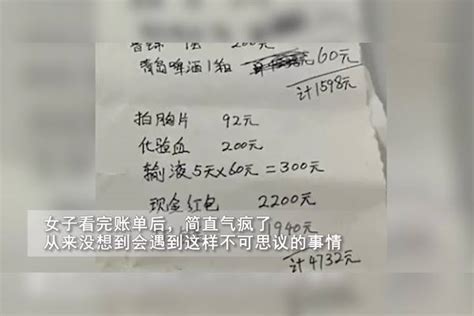 200元
青岛啤酒1箱 60元
计1598元
拍胸片 92元
化验血 200元
输液5天×60元=300元
现金红包 2200元
1940元
计4732元
女子看完账单后，简直气疯了
从来没想到会遇到这样不可思议的事情